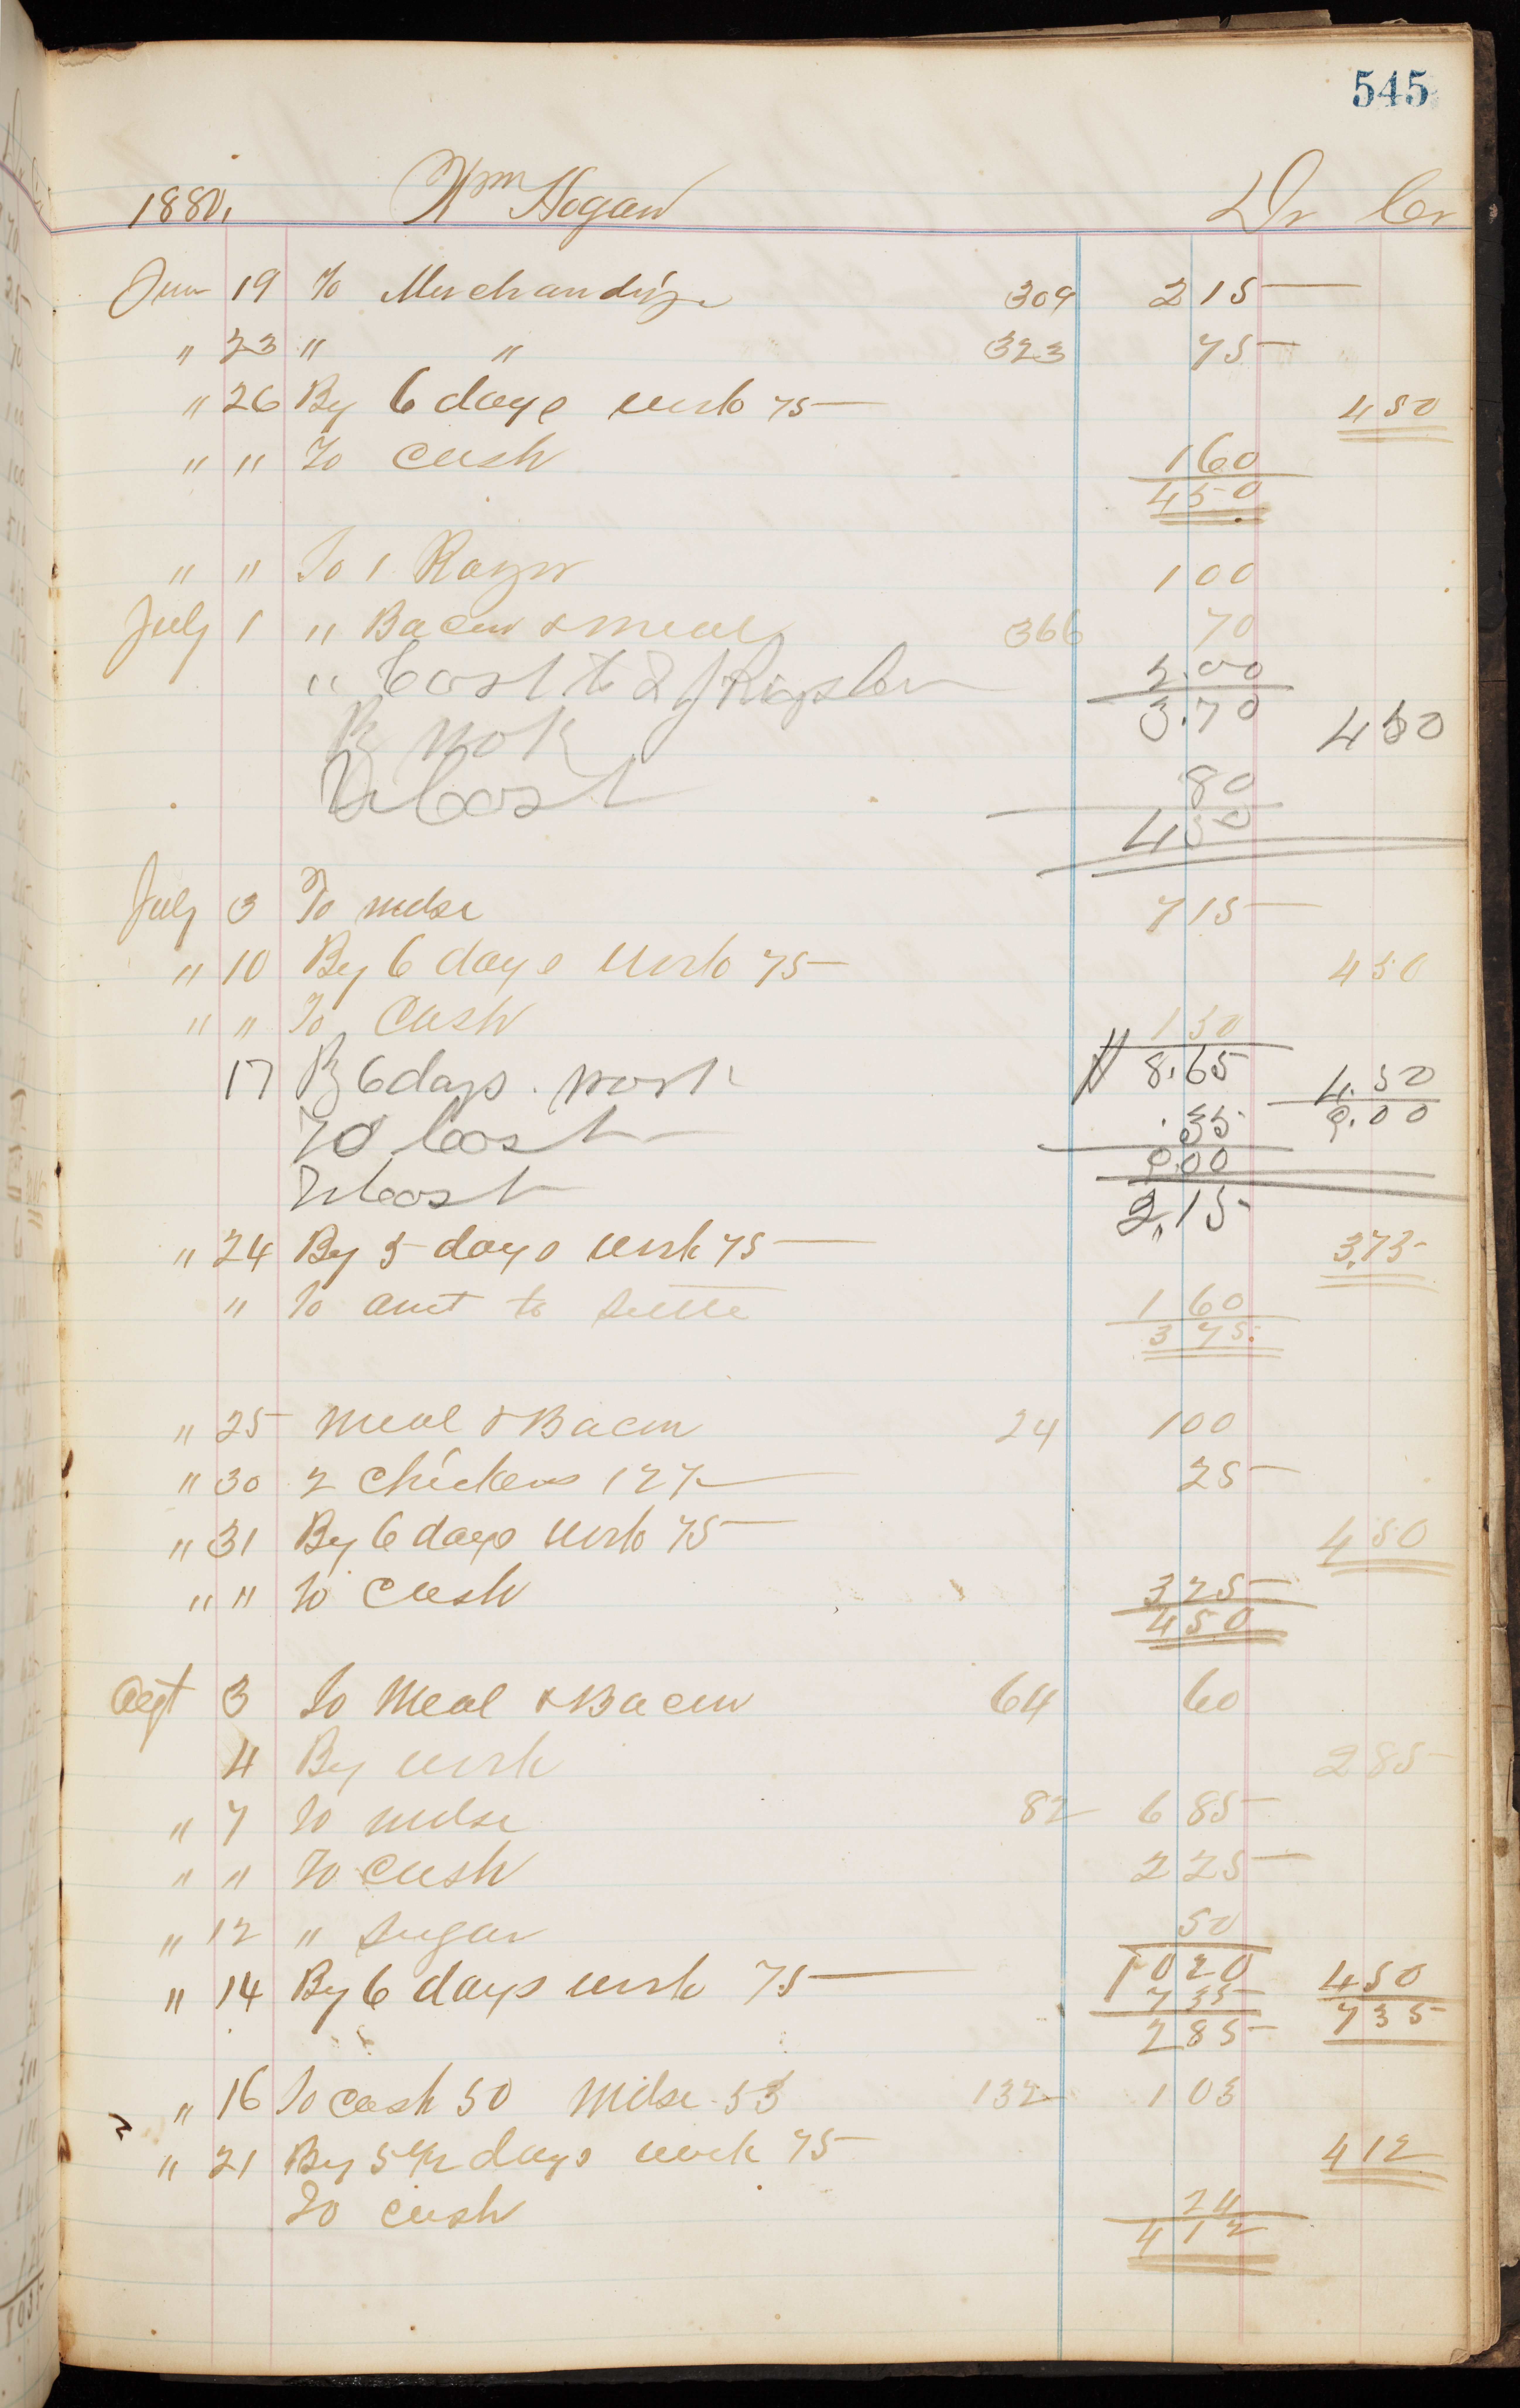 545
1880, Wm Hogan Dr Cr
Jun 19 To Merchandize 309 215
" 23 " " 323 75
" 26 By 6 days work 75 450
" " To Cash 160
450
" " To 1 Razor 100
July 1 " Bacon & Meal 366 70
" Cash to 2.00
3.70
By Work 450
To Cash 80
450
July 3 To mdse 715
" 10 By 6 days work 75 450
" " To Cash 150
8.65
17 By 6 days work 4.50
9.00
To Cash .35
9.00
To Cash 2.15
" 24 By 5 days work 75 3.75
" To amt to settle 160
375
" 25 Meal & Bacon 24 100
" 30 2 Chickens 12½ 25
" 31 By 6 days work 75 450
" " To Cash 325
450
Agt 3 To Meal & Bacon 64 60
4 By work 285
" 7 To mdse 82 685
" " To Cash 225
" 12 " Sugar 50
1020
" 14 By 6 days work 75 450
735 735
285
" 16 To Cash 50 Mdse 53 132 103
" 21 By 5½ days work 75 412
To Cash 24
412